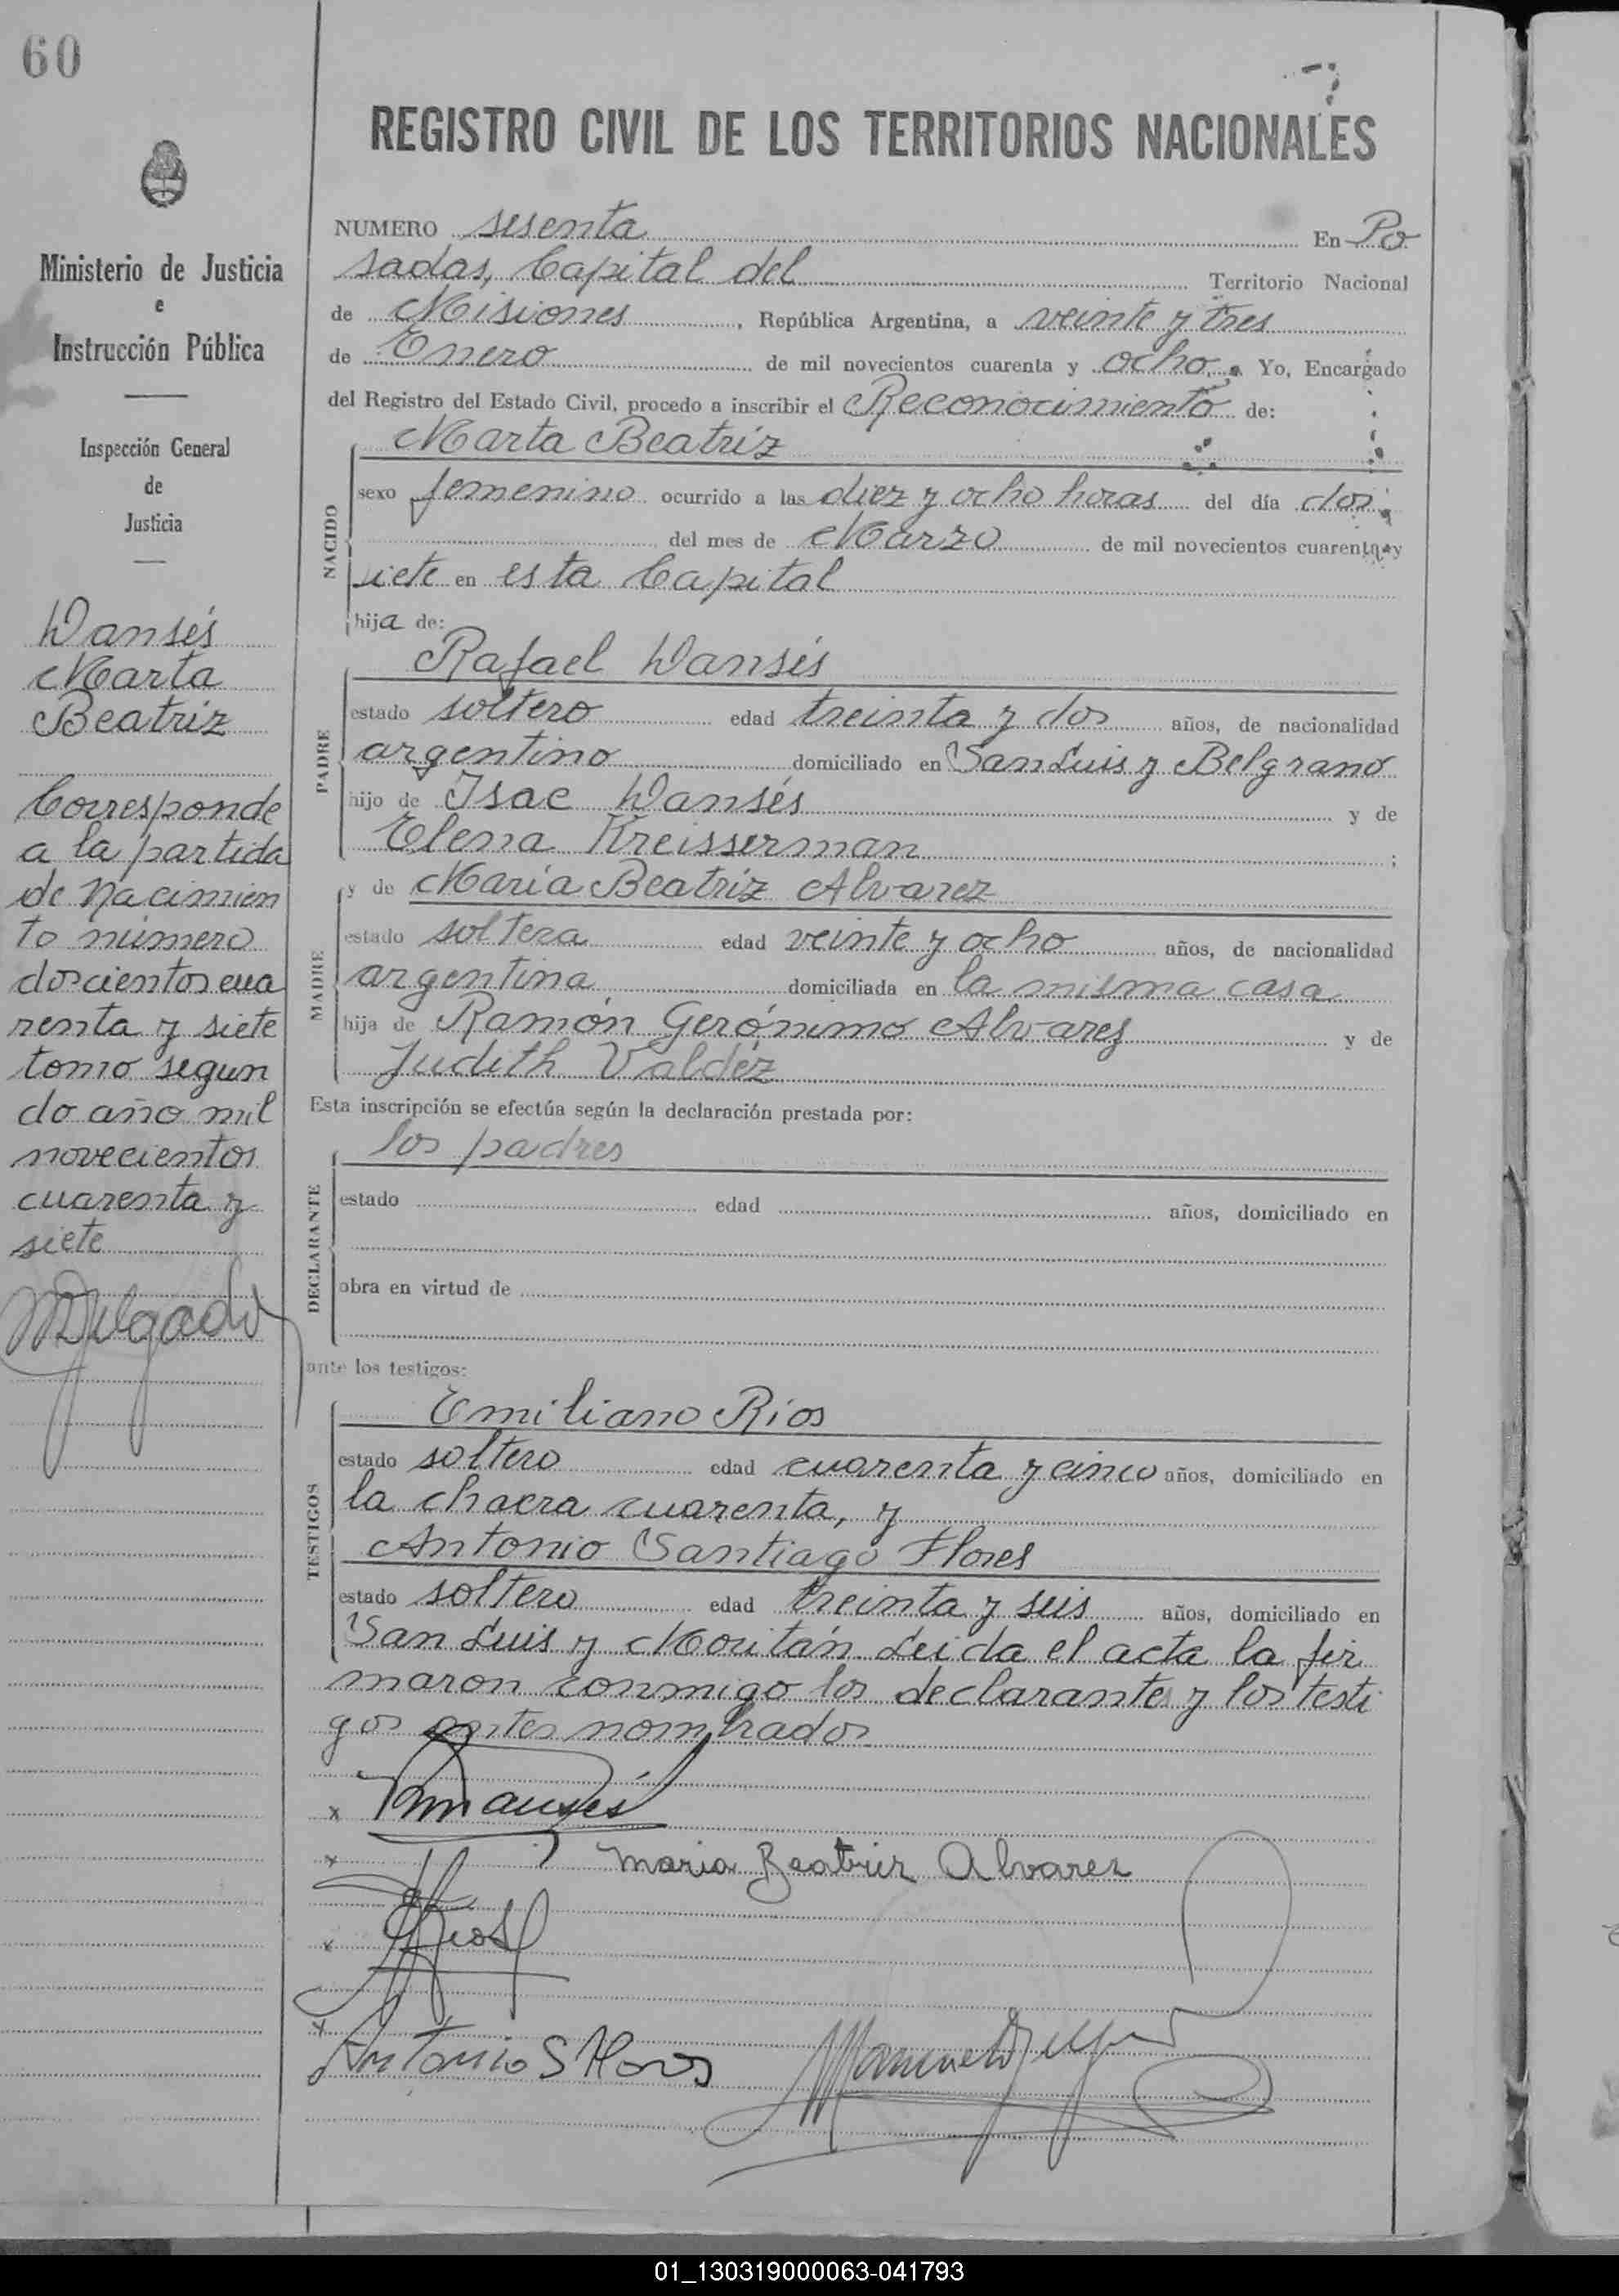 60
Ministerio de Justicia
e
Instrucción Pública
Inspección General
de
Justicia
Wansés
Marta
Beatriz
Corresponde
a la partida
de Nacimien
to número
doscientos cua
renta y siete
tomo segun
do año mil
novecientos
cuarenta y
siete
MDelgado
REGISTRO CIVIL DE LOS TERRITORIOS NACIONALES
NUMERO sesenta En Po
sadas, Capital del Territorio Nacional
de Misiones, República Argentina, a veinte y tres
de Enero de mil novecientos cuarenta y ocho. Yo, Encargado
del Registro del Estado Civil, procedo a inscribir el Reconocimiento de:
NACIDO
Marta Beatriz
sexo femenino ocurrido a las diez y ocho horas del día dos
del mes de Marzo de mil novecientos cuarenta y
siete en esta Capital
hija de:
PADRE
Rafael Wansés
estado soltero edad treinta y dos años, de nacionalidad
argentino domiciliado en San Luis y Belgrano
hijo de Isac Wansés y de
Elena Kreisserman ;
MADRE
y de María Beatriz Alvarez
estado soltera edad veinte y ocho años, de nacionalidad
argentina domiciliada en la misma casa
hija de Ramón Gerónimo Alvarez y de
Judith Valdéz
Esta inscripción se efectúa según la declaración prestada por:
DECLARANTE
los padres
estado edad años, domiciliado en
obra en virtud de
ante los testigos:
TESTIGOS
Emiliano Ríos
estado soltero edad cuarenta y cinco años, domiciliado en
la chacra cuarenta, y
Antonio Santiago Flores
estado soltero edad treinta y seis años, domiciliado en
San Luis y Moritán. Leida el acta la fir
maron conmigo los declarantes y los testi
gos antes nombrados
x
x Maria Beatriz Alvarez
x
x Antonio S Flores
01_130319000063-041793